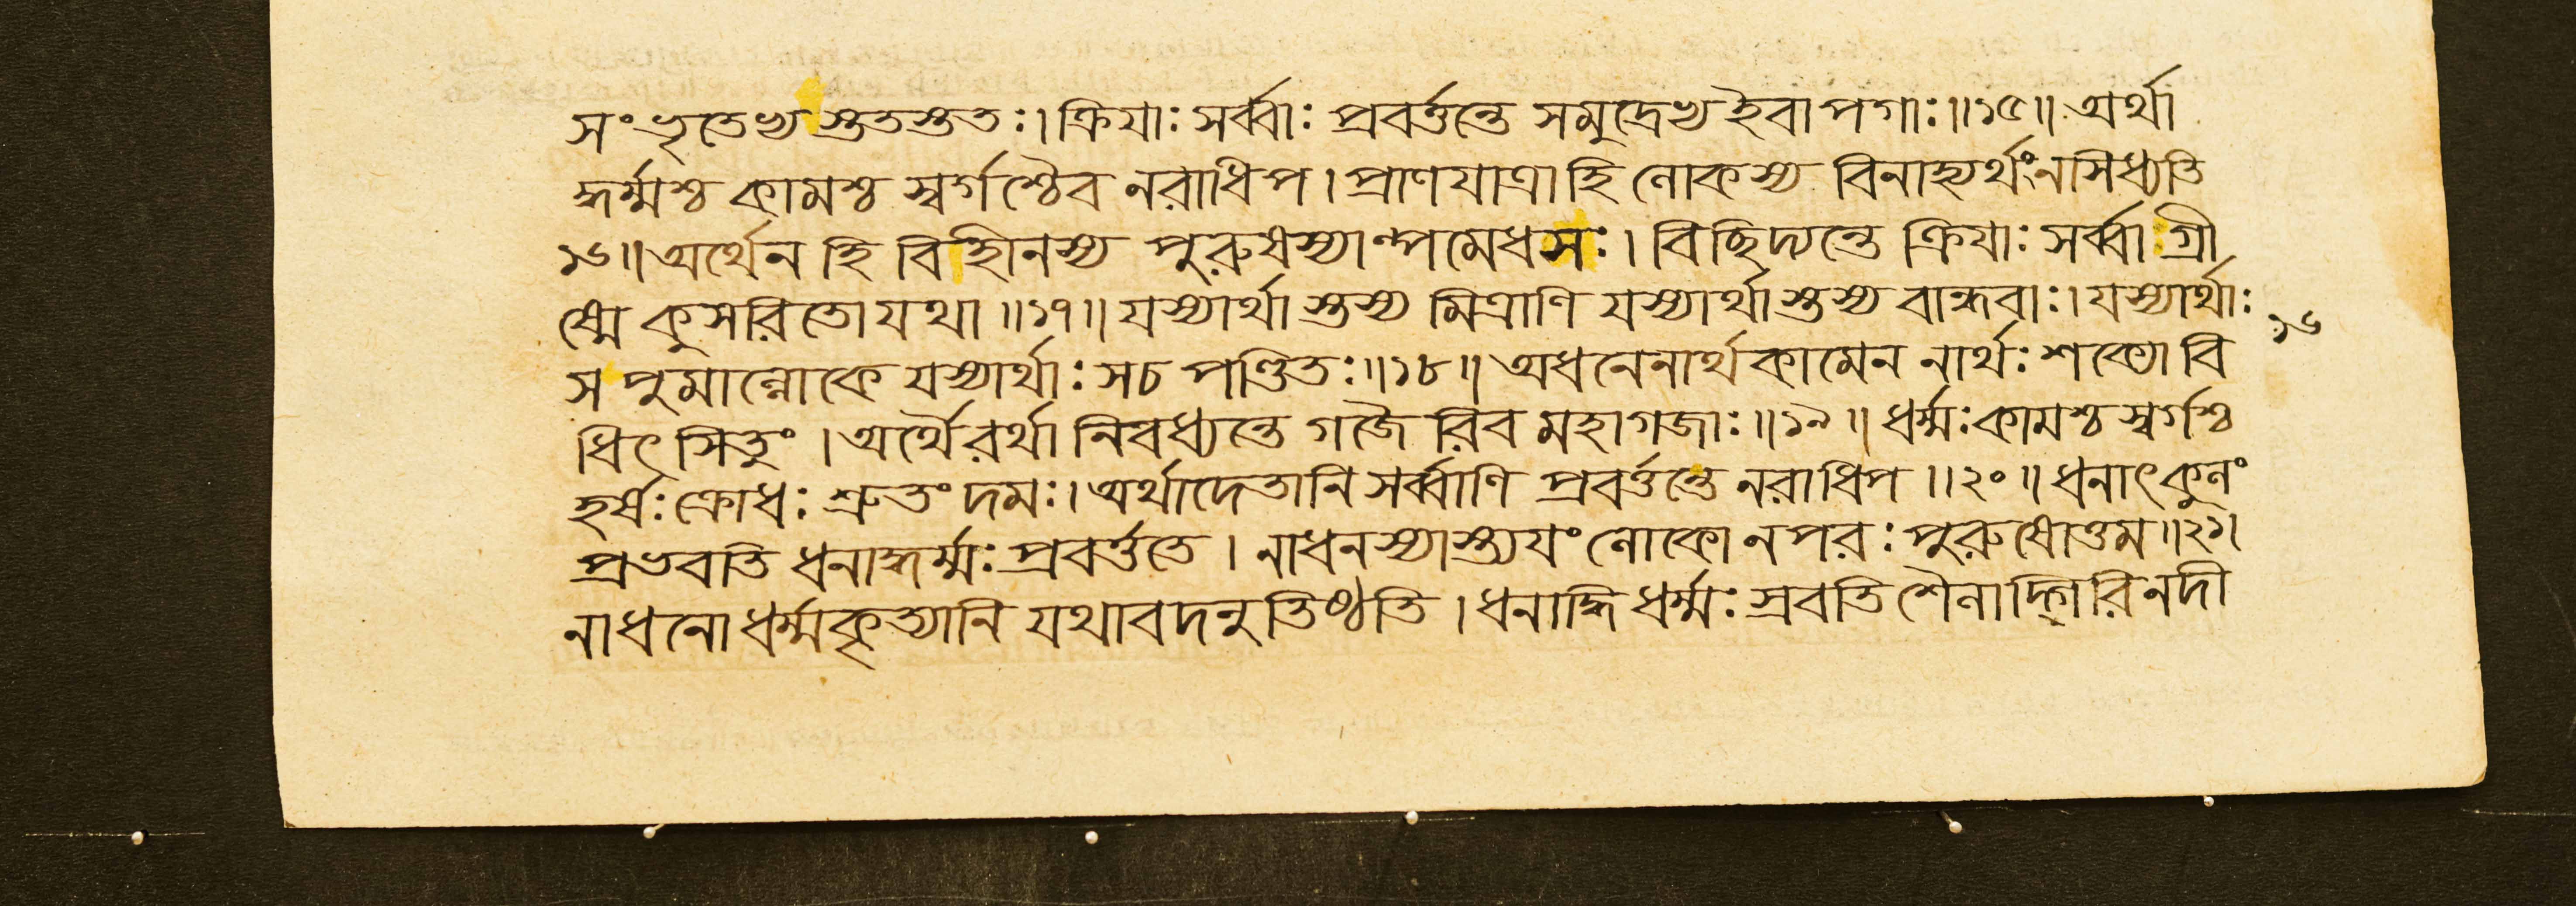 সংভৃতেভ্যস্ততস্ততঃ। ক্রিয়াঃ সর্ব্বাঃ প্রবর্ত্তন্তে সমুদ্রেভ্য ইবাপগাঃ॥১৫॥ অর্থা
দ্ধর্ম্মশ্চ কামশ্চ স্বর্গশ্চৈব নরাধিপ। প্রাণযাত্রা হি লোকস্য বিনাহ্যর্থং ন সিধ্যতি
১৬॥ অর্থেন হি বিহীনস্য পুরুষস্যাল্পমেধসঃ। বিচ্ছিদ্যন্তে ক্রিয়াঃ সর্ব্বা গ্রী
ষ্মে কুসরিতো যথা॥১৭॥ যস্যার্থাস্তস্য মিত্রাণি যস্যার্থাস্তস্য বান্ধবাঃ। যস্যার্থাঃ
১৬
স পুমাল্লোকে যস্যার্থাঃ স চ পণ্ডিতঃ॥১৮॥ অধনেনার্থকামেন নার্থঃ শক্যো বি
ধিৎসিতুং। অর্থৈরর্থা নিবধ্যন্তে গজৈরিব মহাগজাঃ॥১৯॥ ধর্ম্মঃ কামশ্চ স্বর্গশ্চ
হর্ষঃ ক্রোধঃ শ্রুতং দমঃ। অর্থাদেতানি সর্ব্বাণি প্রবর্ত্তন্তে নরাধিপ॥২০॥ ধনাৎকুলং
প্রভবতি ধনাদ্ধর্ম্মঃ প্রবর্ত্ততে। নাধনস্যাস্ত্যয়ং লোকো ন পরঃ পুরুষোত্তম॥২১।
নাধনো ধর্ম্মকৃত্যানি যথাবদনুতিষ্ঠতি। ধনাদ্ধি ধর্ম্মঃ স্রবতি শৈলাদ্গিরিনদী